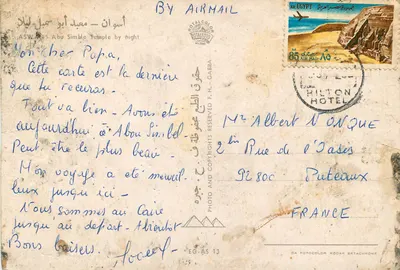 BY AIRMAIL
أسوان - معبد أبو سمبل ليلا
ASWAN - Abu Simble Temple by night
Mon cher Papa,
Cette carte est la dernière
que tu recevras.
Tout va bien - Avons été
aujourd'hui à Abou Simbel
Peut être le plus beau.
Mon voyage a été merveil
leux jusqu'ici -
Nous sommes au Caire
jusqu'au départ - A bientôt
Bons baisers.
حقوق الطبع محفوظة
PHOTO AND COPYRIGHT RESERVED
85
HILTON
HOTEL
Mr Albert
Rue de
92800 Puteaux
FRANCE